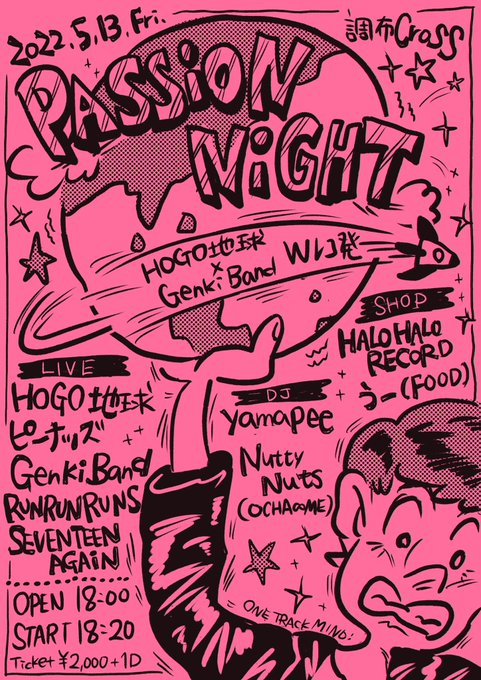 2022.5.13.Fri.
調布Cross
PASSiON
NiGHT
HOGO地球
×
Genki Band Wレコ発
SHOP
HALO HALO
RECORD
うー(FOOD)
LIVE
HOGO地球
ピーナッズ
Genki Band
RUNRUNRUNS
SEVENTEEN
AGAiN
DJ
yamapee
Nutty
Nuts
(OCHA∞ME)
OPEN 18:00
START 18:20
Ticket ¥2,000+1D
ONE TRACK MIND!